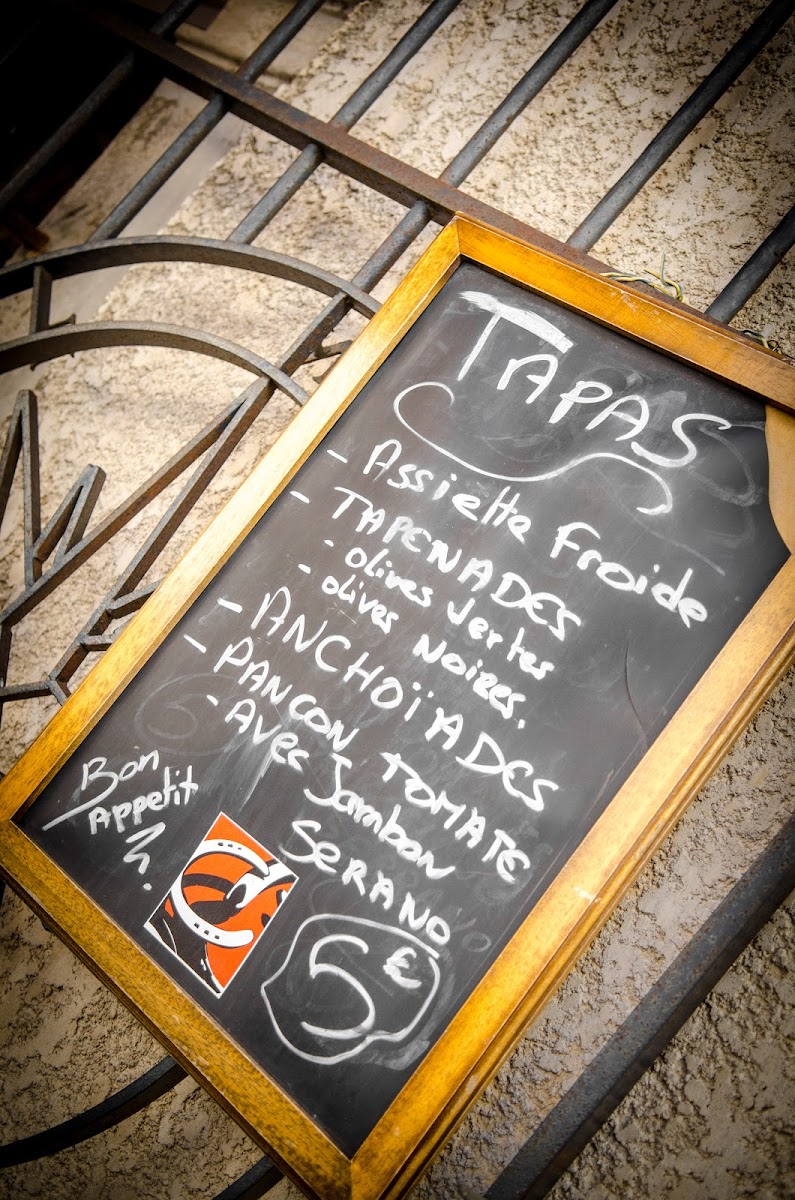 TAPAS
- Assiette Froide
- TAPENADES
- olives vertes
- olives Noires.
- ANCHOïADES
- PANCON TOMATE
- Avec Jambon
SERANO
5€
Bon
Appetit